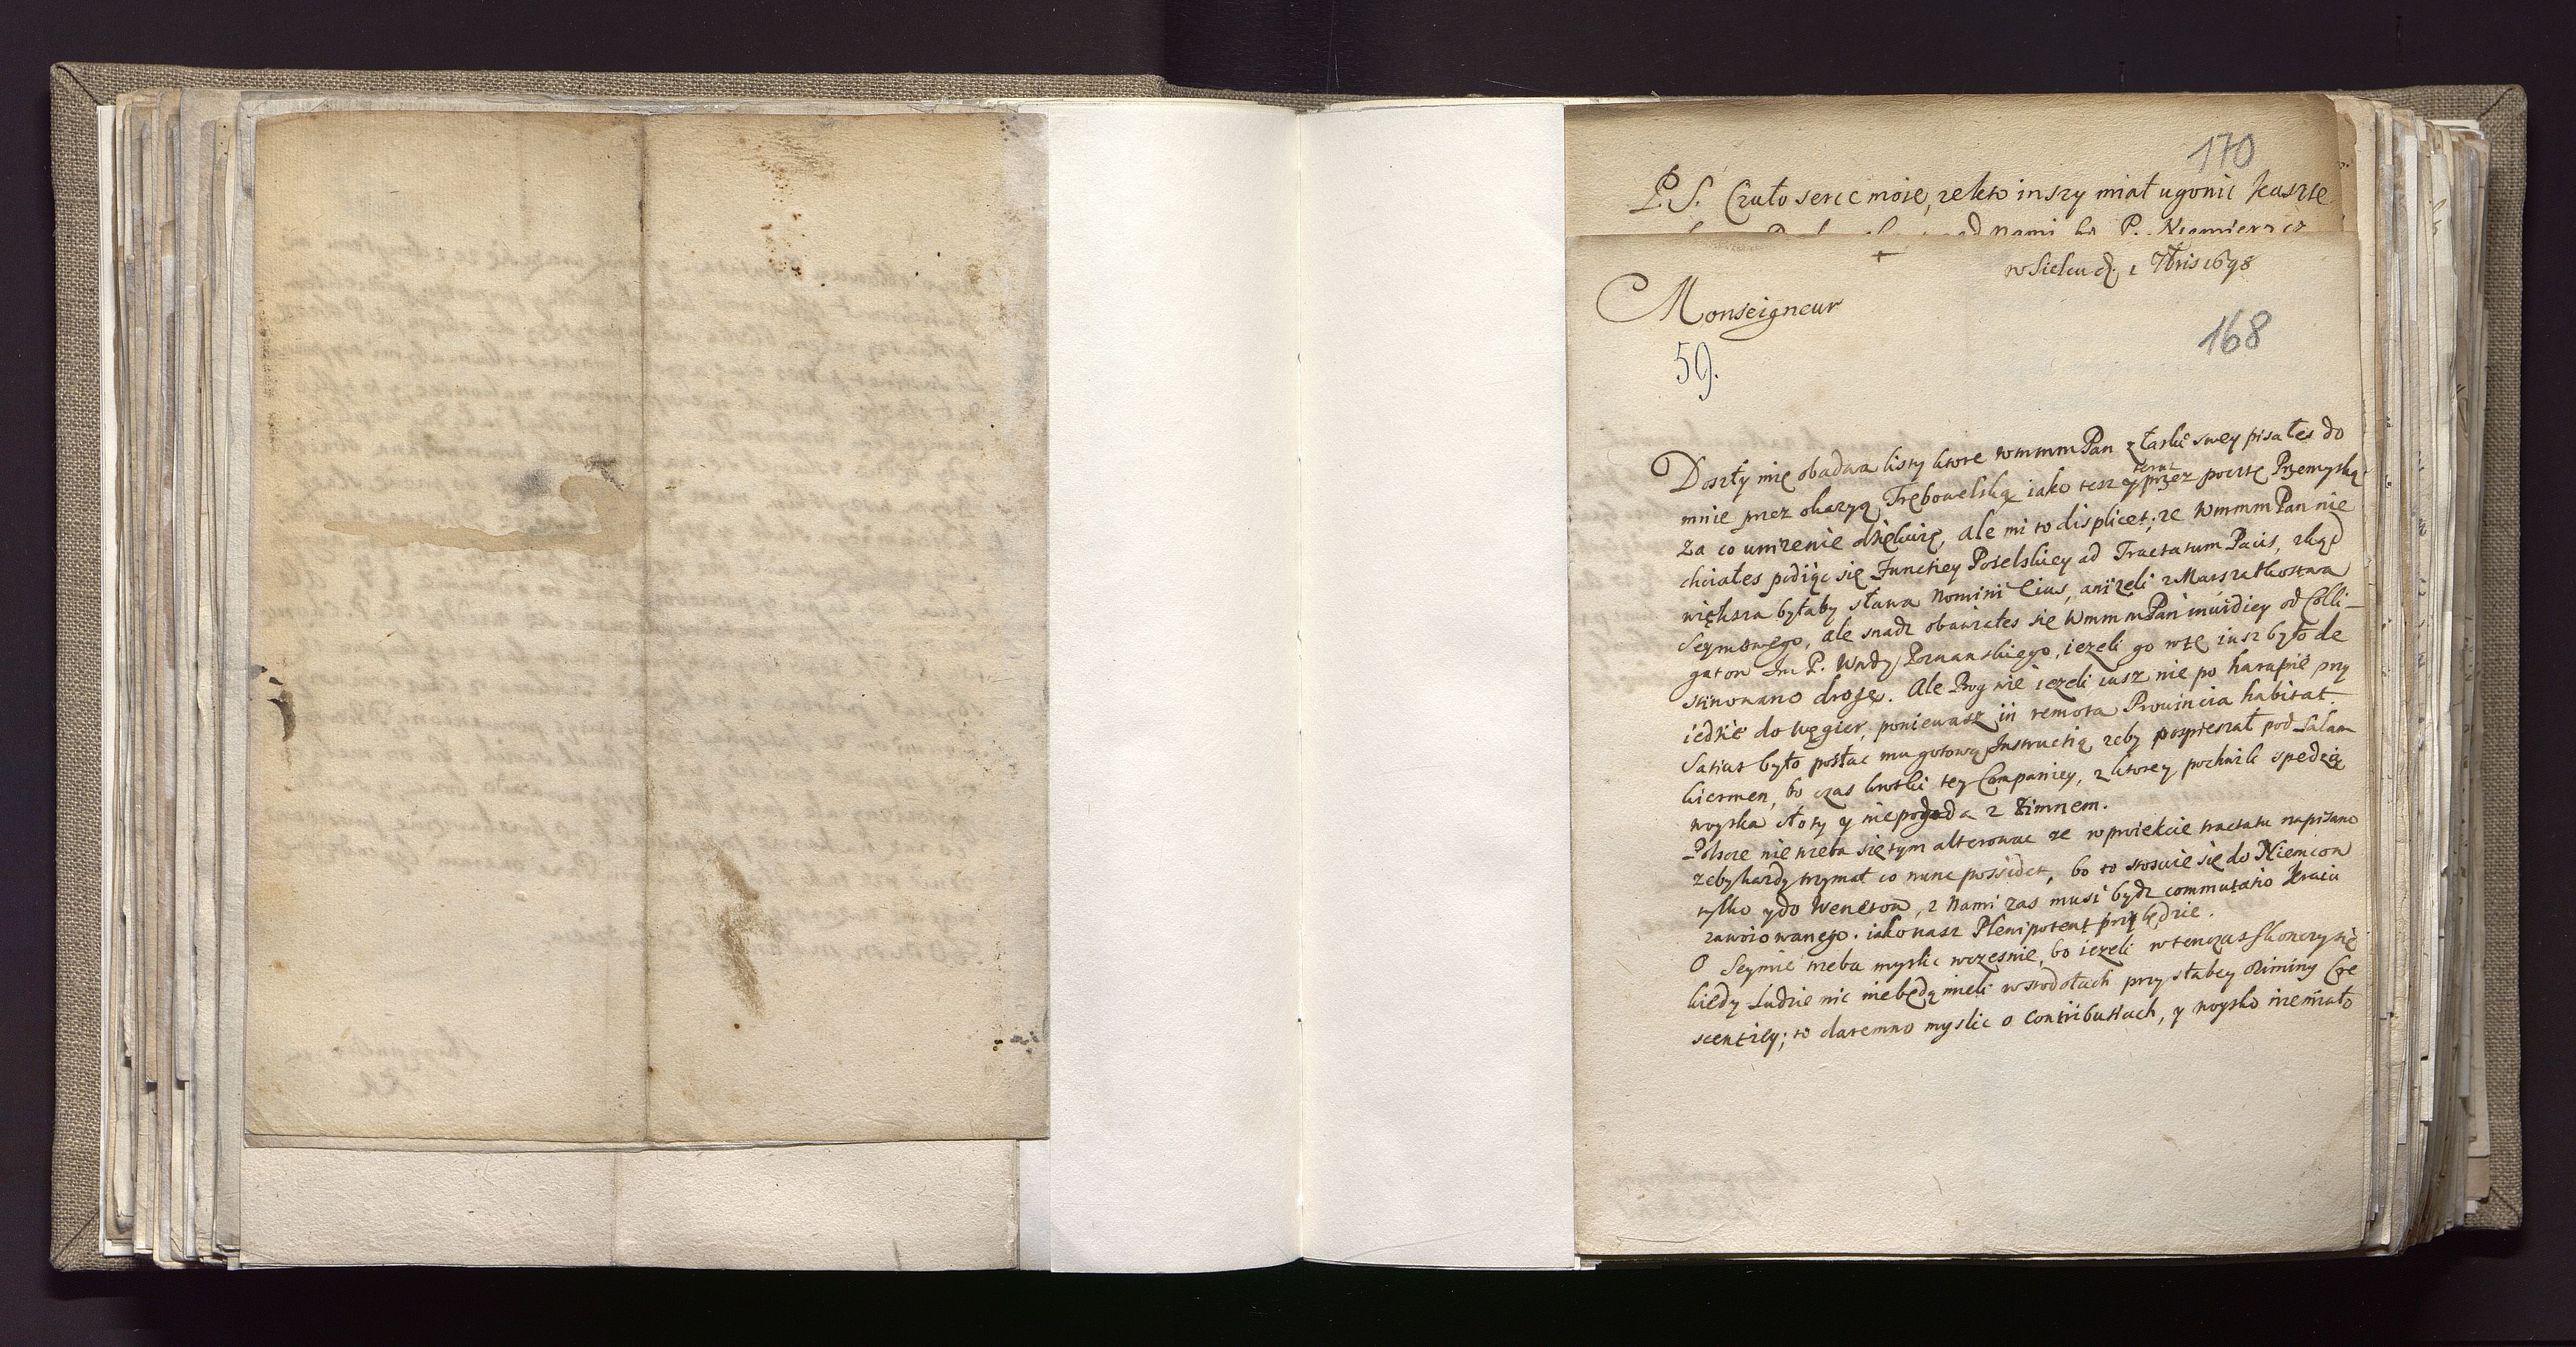 170
P.S. Czuło serce moie, ze kto inszy miał ugonić
nami P.
w Sielcu d. 1 7bris 1698
Monseigneur
168
59.
Doszły mię obadwa listy ktore wmmm Pan z łaski swey pisałes do
mnie przez okazyą Trębowelską iako tesz y przez pocztę Przemyską
teraz
Za co unizenie dziękuię, Ale mi to displicet; ze Wmmm Pan nie
chciałes podiąć się Functiey Poselskiey ad Tractatum Pacis, zkąd
większa byłaby sława Nomini Eius, anizeli z Marszałkostwa
Seymowego, ale snadz obawiałes się Wmmm Pan od Colli-
gatow Im P. Wndy Poznanskiego, iezeli go iusz było de
drogę. Ale Bog wie iezeli iusz nie po harapie przy
iedzie do Węgier, poniewasz in remota Prouincia habitat.
Satius było posłac mu gotową Instructią zeby pospieszał pod Salan
kiermen, bo czas krotki tey Campaniey, z ktorey pochwili spedzią
woyska słoty y niepogoda z Zimnem.
Polszcze nie trzeba się tym alterowac ze w proiekcie tractatu napisano
zeby kazdy trzymał co nunc possidet, bo to stosuie się do Niemcow
tylko y do Wenetow, z Nami zas musi bydz commutatio Kraiu
zawoiowanego. iako nasz Plenipotent przybędzie.
O Seymie trzeba myslic wczesnie, bo iezeli wtenczas skonczy się
kiedy Ludzie nic niebędą mieli w stodołach przy słabey oziminy Cre
scentiey; to daremno myslic o Contributiach, y woysko niemiało